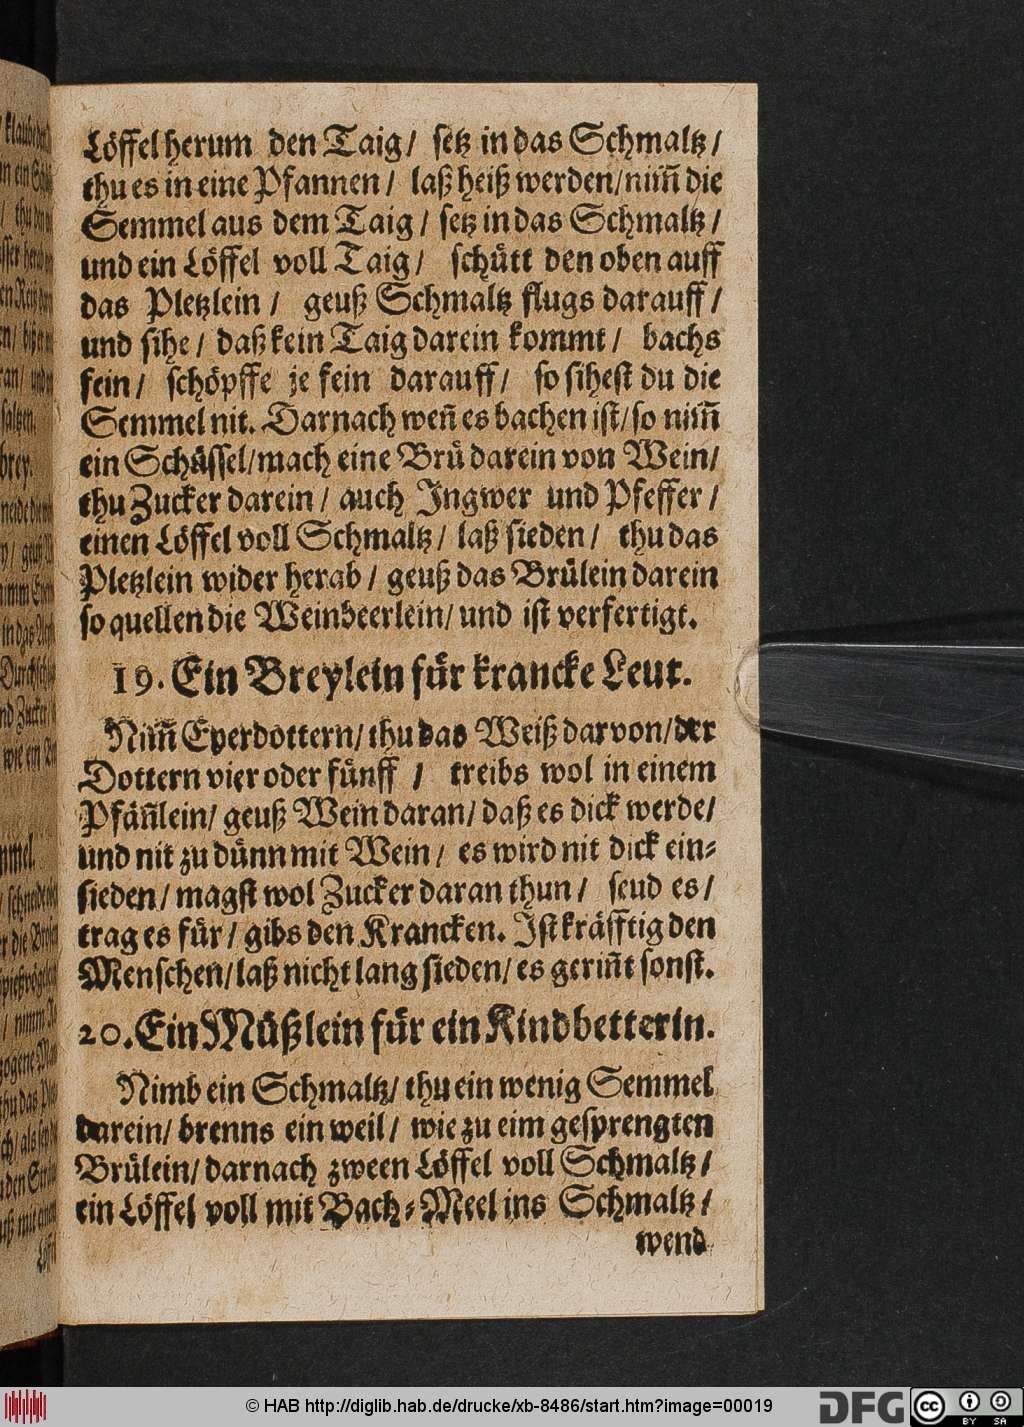 Löffel herum den Taig / setz in das Schmaltz /
thu es in eine Pfannen / laß heiß werden / nim̃ die
Semmel aus dem Taig / setz in das Schmaltz /
und ein Löffel voll Taig / schütt den oben auff
das Pletzlein / geuß Schmaltz flugs darauff /
und sihe / daß kein Taig darein kommt / bachs
fein / schöpffe je fein darauff / so sihest du die
Semmel nit. Darnach weñ es bachen ist / so nim̃
ein Schüssel / mach eine Brü darein von Wein /
thu Zucker darein / auch Ingwer und Pfeffer /
einen Löffel voll Schmaltz / laß sieden / thu das
Pletzlein wider herab / geuß das Brülein darein
so quellen die Weinbeerlein / und ist verfertigt.
19. Ein Breylein für krancke Leut.
Nim̃ Eyerdottern / thu das Weiß darvon / der
Dottern vier oder fünff / treibs wol in einem
Pfäñlein / geuß Wein daran / daß es dick werde /
und nit zu dünn mit Wein / es wird nit dick ein-
sieden / magst wol Zucker daran thun / seud es /
trag es für / gibs den Krancken. Ist kräfftig den
Menschen / laß nicht lang sieden / es geriñt sonst.
20. Ein Müßlein für ein Kindbetterin.
Nimb ein Schmaltz / thu ein wenig Semmel
darein / brenns ein weil / wie zu eim gesprengten
Brülein / darnach zween Löffel voll Schmaltz /
ein Löffel voll mit Bach-Meel ins Schmaltz /
wend
© HAB http://diglib.hab.de/drucke/xb-8486/start.htm?image=00019
DFG
cc BY SA